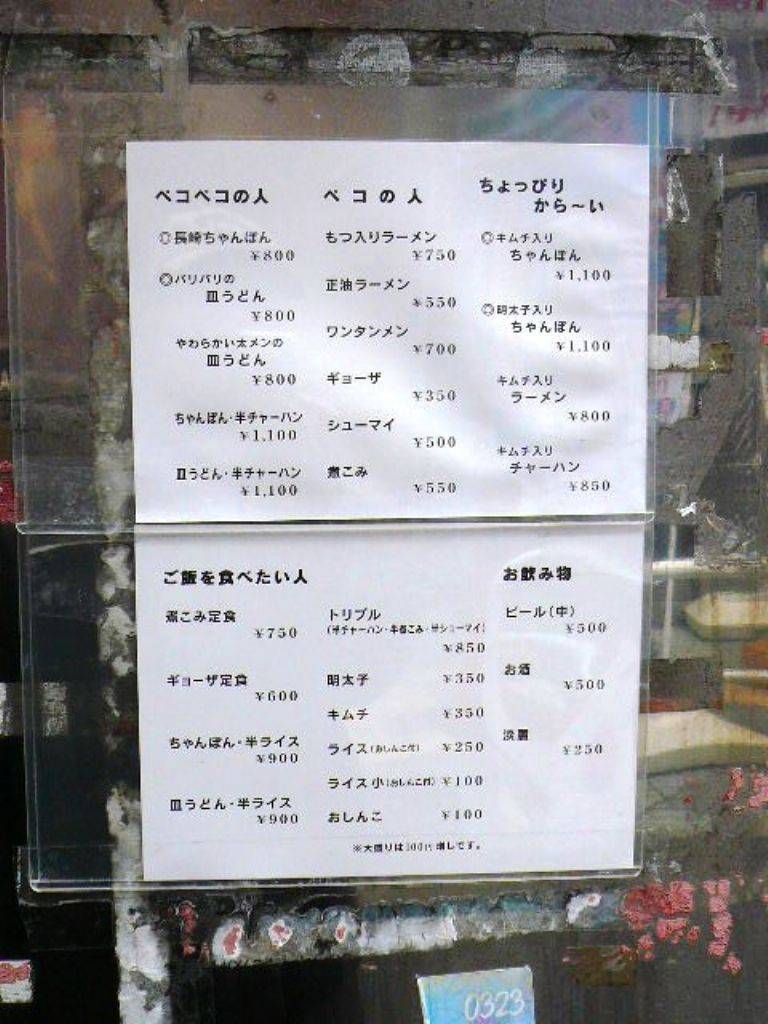 ペコペコの人
◎長崎ちゃんぽん
¥800
◎パリパリの
皿うどん
¥800
やわらかい太メンの
皿うどん
¥800
ちゃんぽん・半チャーハン
¥1,100
皿うどん・半チャーハン
¥1,100
ペコの人
もつ入りラーメン
¥750
正油ラーメン
¥550
ワンタンメン
¥700
ギョーザ
¥350
シューマイ
¥500
煮こみ
¥550
ちょっぴり
から〜い
◎キムチ入り
ちゃんぽん
¥1,100
◎明太子入り
ちゃんぽん
¥1,100
キムチ入り
ラーメン
¥800
キムチ入り
チャーハン
¥850
ご飯を食べたい人
煮こみ定食
¥750
ギョーザ定食
¥600
ちゃんぽん・半ライス
¥900
皿うどん・半ライス
¥900
トリプル
(半チャーハン・半煮こみ・半シューマイ)
¥850
明太子 ¥350
キムチ ¥350
ライス(おしんこ付) ¥250
ライス小(おしんこ付) ¥100
おしんこ ¥100
※大盛りは100円増しです。
お飲み物
ビール(中)
¥500
お酒
¥500
淡麗
¥250
0323